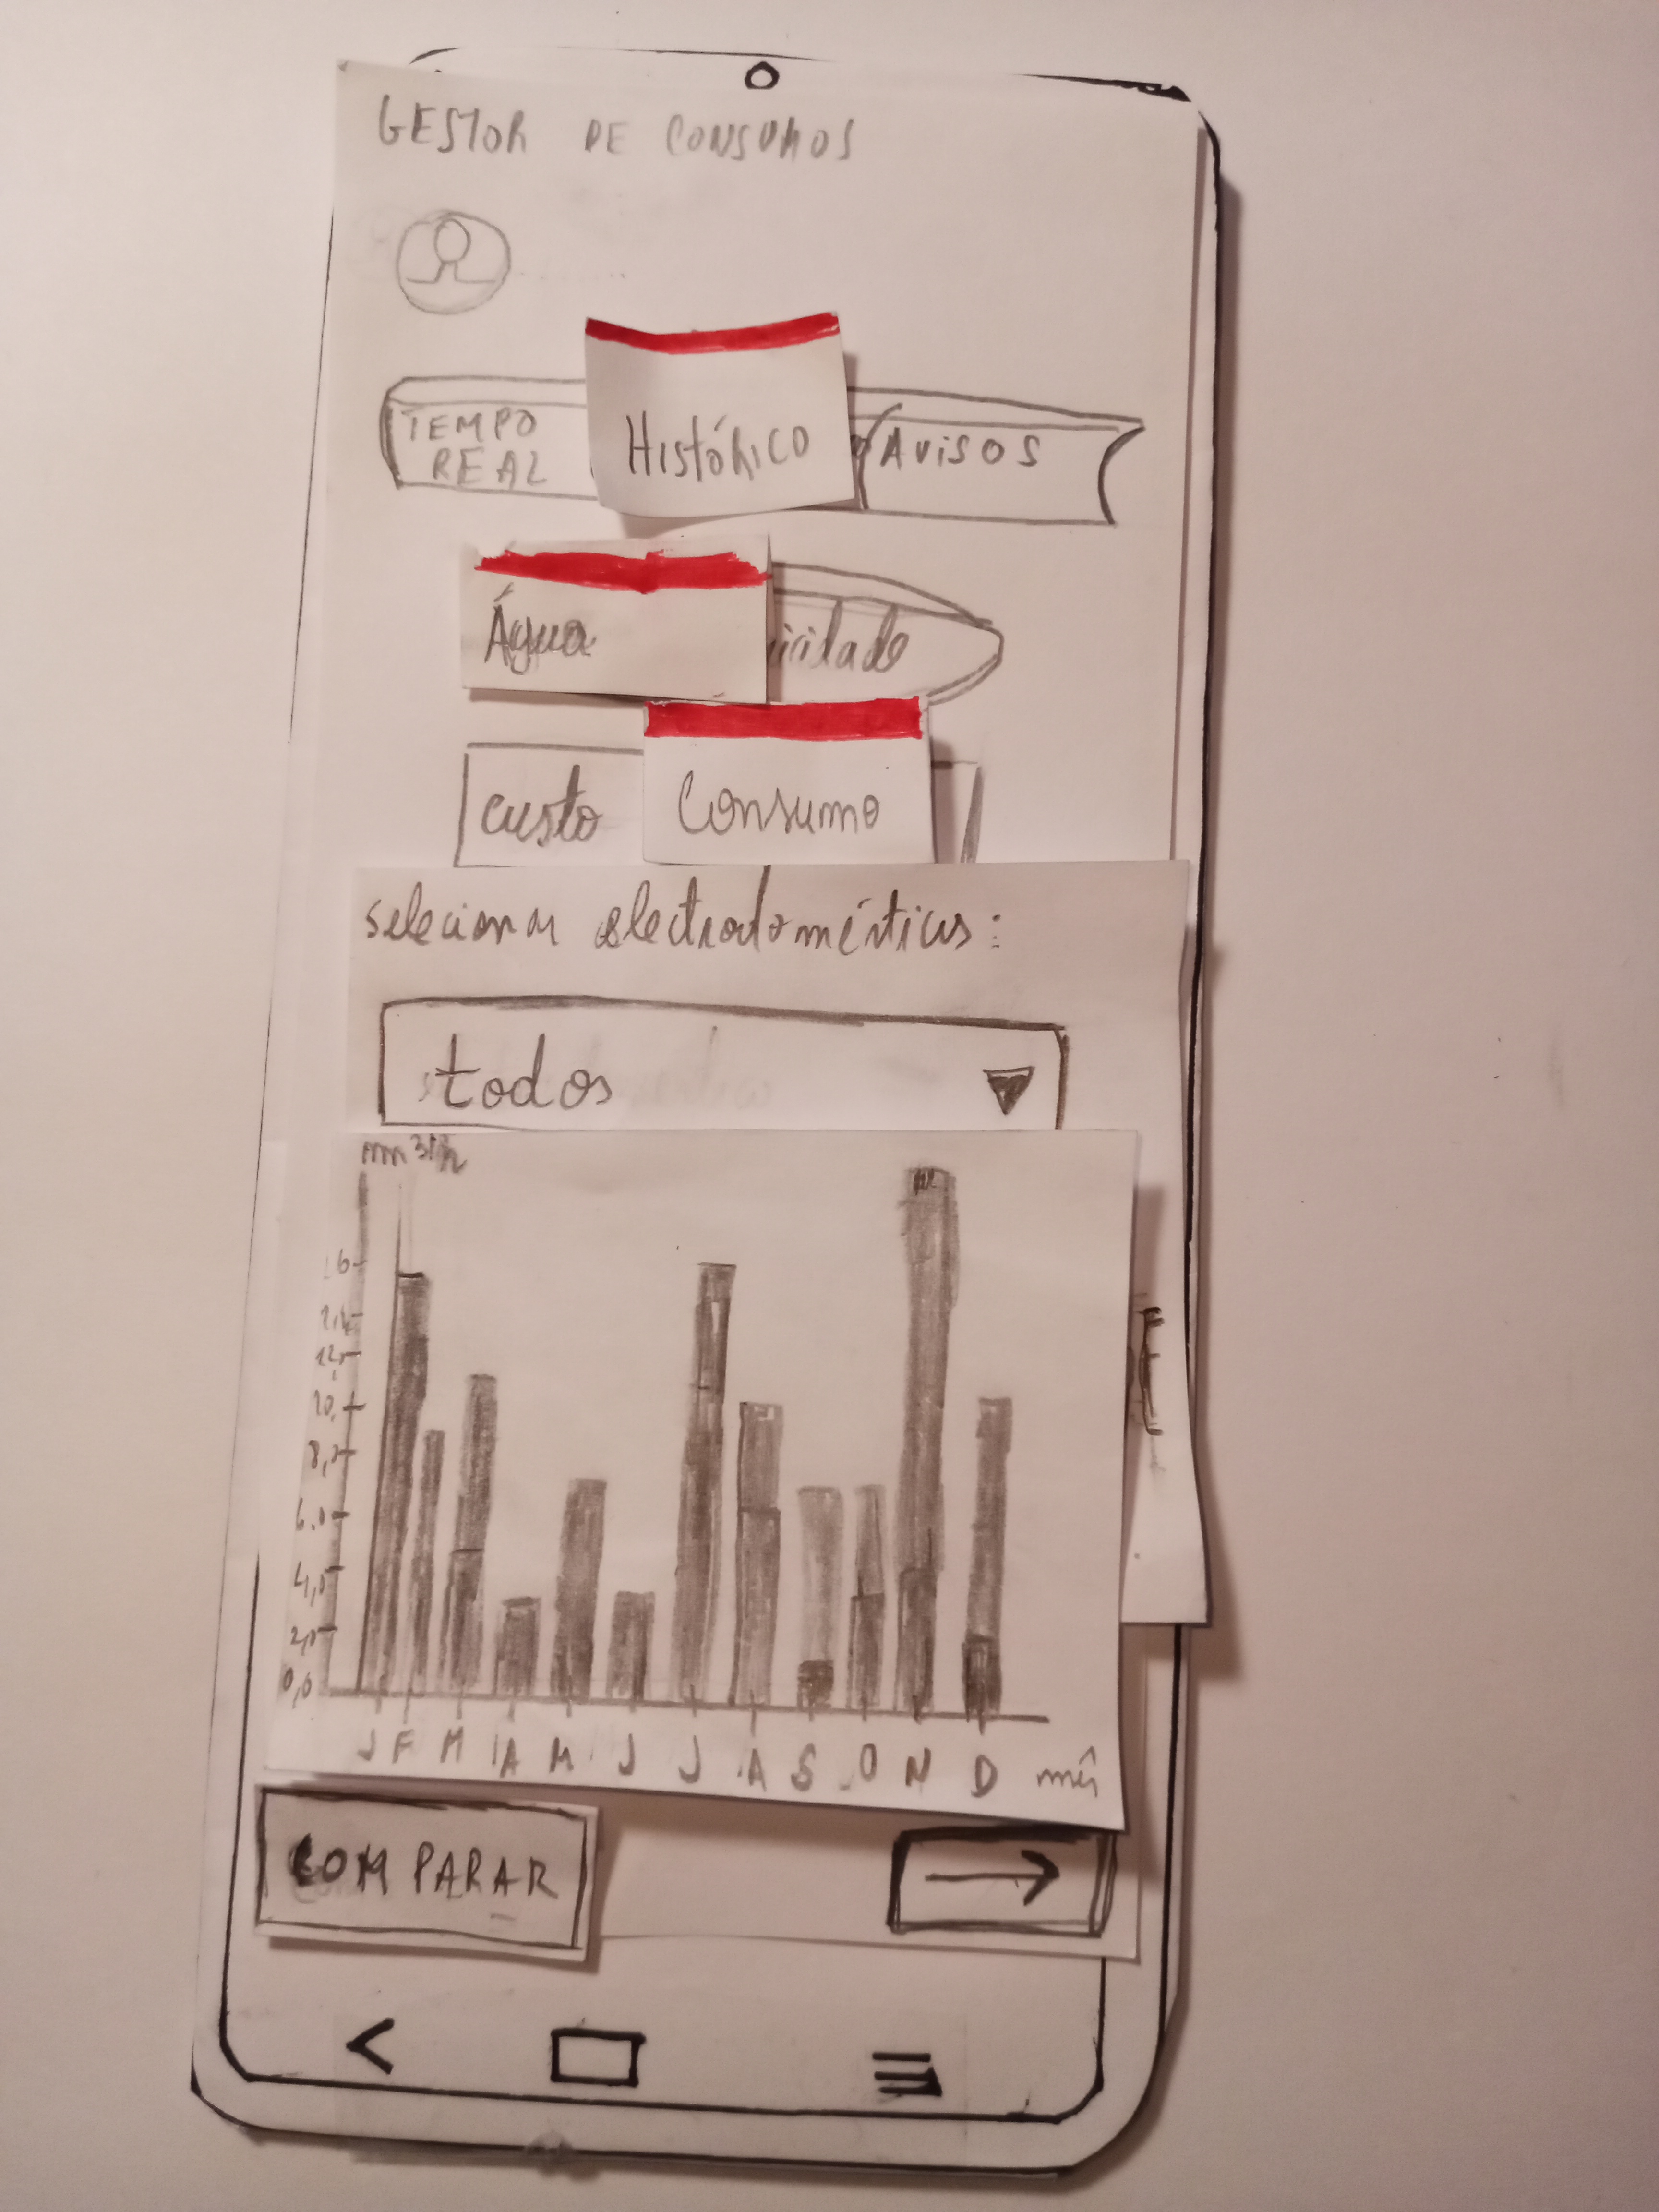 GESTOR DE CONSUMOS
TEMPO REAL
Histórico
Avisos
Água
icidade
custo
Consumo
selecionar electrodomésticos:
todos
16
12,
10,
8,0
6,0
4,0
2,0
0,0
J F M A M J J A S O N D mês
COMPARAR